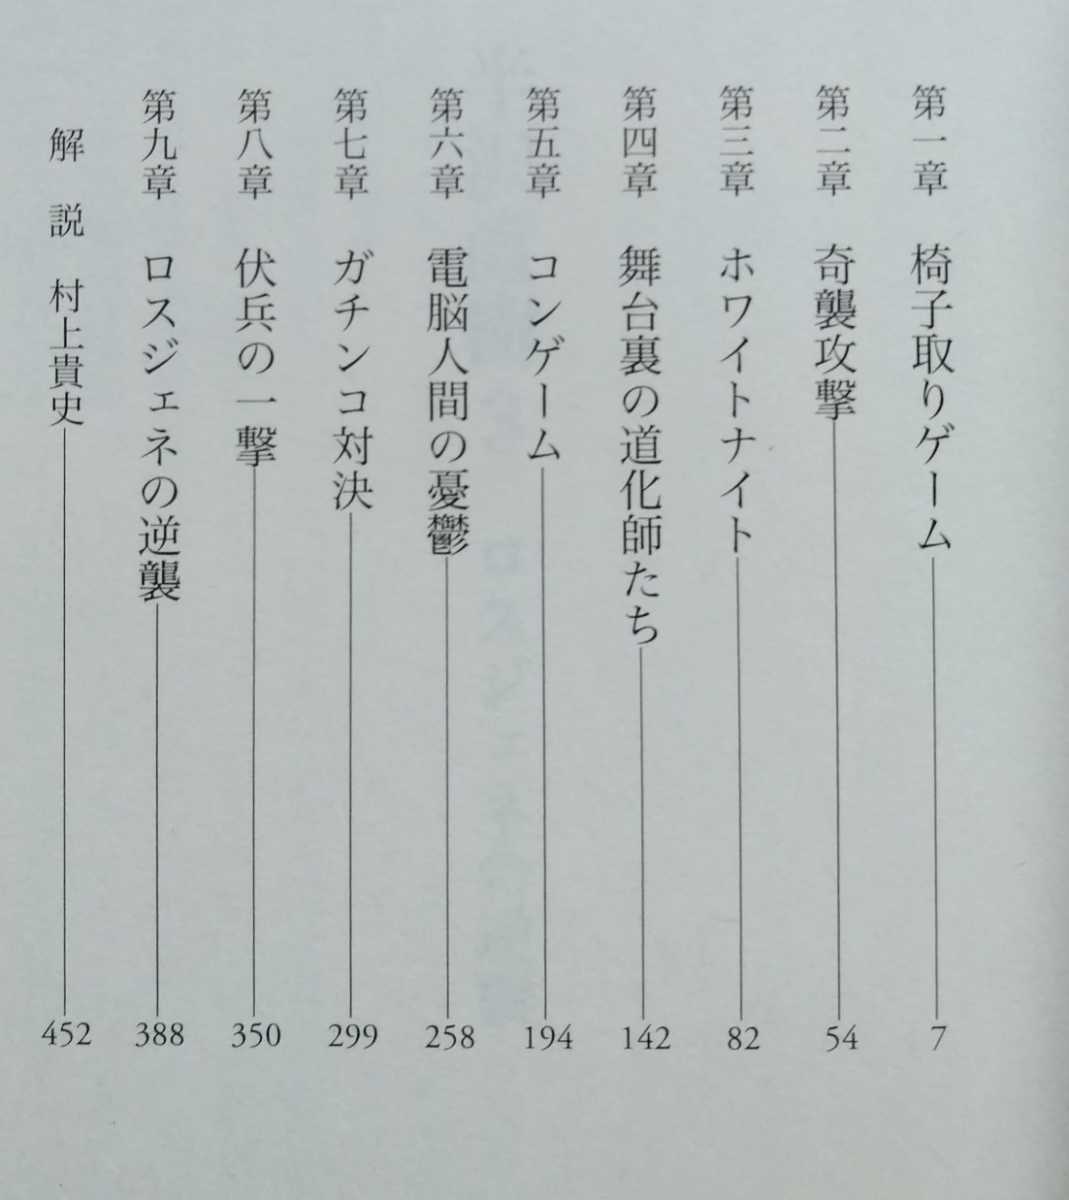 第一章 椅子取りゲーム 7
第二章 奇襲攻撃 54
第三章 ホワイトナイト 82
第四章 舞台裏の道化師たち 142
第五章 コンゲーム 194
第六章 電脳人間の憂鬱 258
第七章 ガチンコ対決 299
第八章 伏兵の一撃 350
第九章 ロスジェネの逆襲 388
解説 村上貴史 452